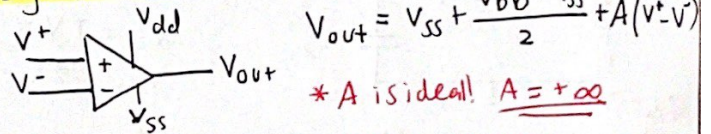 V+
V-
+
-
Vdd
Vss
Vout
Vout = Vss + /2 + A(V+-V-)
* A is ideal! A = +∞